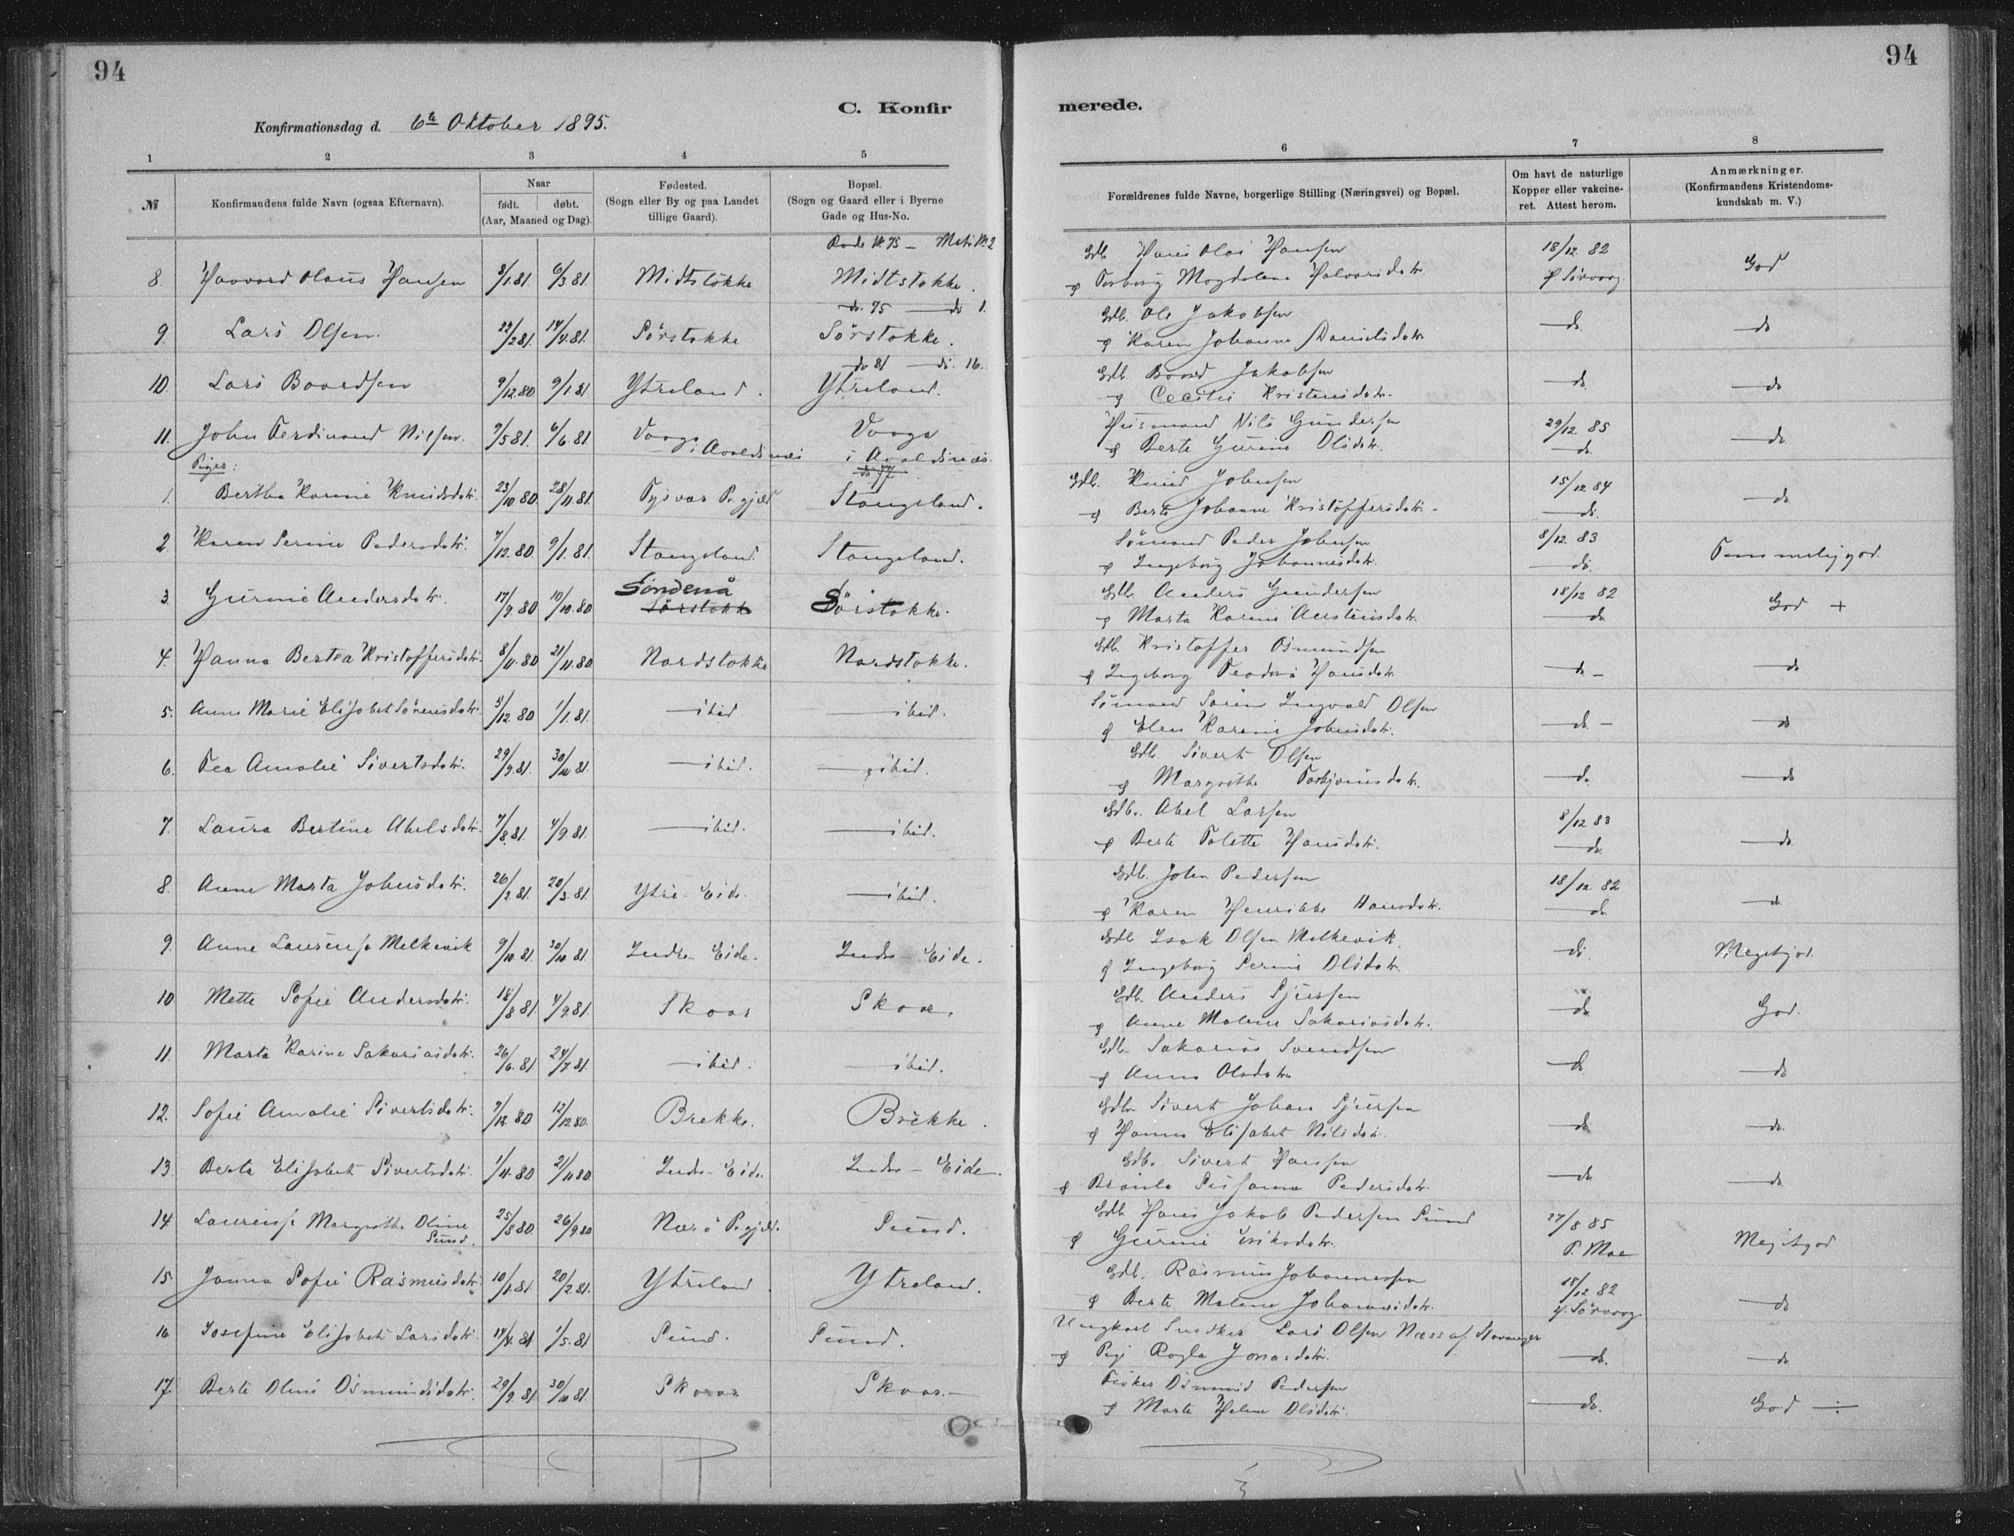 94
94
C. Konfir
merede.
Konfirmationsdag d. 6te Oktober 1895.
1 2 3 4 5 6 7 8
№
Konfirmandens fulde Navn (ogsaa Efternavn).
Naar
født. døbt.
(Aar, Maaned og Dag).
Fødested.
(Sogn eller By og paa Landet
tillige Gaard).
Bopæl.
(Sogn og Gaard eller i Byerne
Gade og Hus-No.
Forældrenes fulde Navne, borgerlige Stilling (Næringsvei) og Bopæl.
Om havt de naturlige
Kopper eller vakcine-
ret. Attest herom.
Anmærkninger.
(Konfirmandens Kristendoms-
kundskab m. V.)
8. Haavard Olaus Hansen 3/1.81 6/3 81. Midtstokke Midtstokke. Gdb. Hans Olai Hansen 18/12 82 God
& Torborg Magdalena Halvorsdatr.
do. 75 — do 1.
9. Lars Olsen. 22/2 81. 14/4.81. Sørstokke Sørstokke. Gdb. Ole Jakobsen do do
& Karen Johanne Danielsdatr
do 81 — do. 16.
10. Lars Baardsen 9/12 80 9/1.81 Ytreland. Ytreland. Gdb Baard Jakobsen do do
& Cecilie Kristensdatr.
11. John Ferdinand Nilsen. 7/5 81. 6/6.81 Vaage i Avaldsnæs Vaage i Avaldsnæs. Husmand Nils Gundersen 29/12 85 do
& Berte Gurine Olsdatr. do
Piger:
1. Bertha Karine Knudsdatr. 23/10 80 28/11 81. Tysvær P.gjæld Stangeland. Gdb. Knud Johnsen 15/12 84 do
& Berte Johanne Kristoffersdatr. do.
2. Karen Serine Pedersdatr. 7/12.80 9/1.81. Stangeland. Stangeland. Sømand Peder Johnsen 8/12 83 Temmelig god.
& Ingeborg Johannesdatr. do.
3. Gurine Andersdatr. 17/9.80 10/10.80 Søndenå Sørstokke Sørstokke. Gdb. Anders Gundersen 18/12 82 God +
& Marta Karine Austensdatr. do.
4. Hanna Bertea Kristoffersdatr. 8/11.80 21/11.80 Nordstokke Nordstokke. Gdb. Kristoffer Osmundsen do do
& Ingeborg Teodora Hansdatr.
5. Anne Marie Elisabet Sørensdatr. 3/12 80 1/1.81. ibid ibid. Sømand Søren Ingvald Olsen do do
& Elen Karine Johnsdatr.
6. Tea Amalie Sivertsdatr. 29/9.81. 30/10 81. ibid. ibid. Gdb. Sivert Olsen do do
& Margrethe Torbjørnsdatr.
7. Laura Bertine Abelsdatr. 7/8.81. 4/9 81. ibid. ibid. Gdb. Abel Larsen 8/12 83 do
& Berte Tolette Hansdatr. do.
8. Anne Marta Johnsdatr. 26/2 81. 20/3.81. Ytre Eide. ibid. Gdb. John Pedersen 18/12 82 do
& Karen Henrikke Hansdatr. do.
9. Anne Laurense Melkevik 9/10 81. 30/10 81. Indre Eide. Indre Eide. Gdb. Isak Olsen Melkevik. do. Meget god.
& Ingeborg Serine Olsdatr.
10. Mette Sofie Andersdatr. 18/8 81. 4/9 81. Skaar Skaar. Gdb. Anders Sjursen do God.
& Anne Malene Sakariasdatr.
11. Marta Karine Sakariasdatr. 26/6.81. 24/7 81. ibid. ibid. Gdb. Sakarias Svendsen do do
& Anna Olsdatr
12. Sofie Amalie Sivertsdatr. 7/12 80 12/12 80. Brekke. Brekke. Gdb. Sivert Johan Sjursen do do.
& Hanna Elisabet Nilsdatr.
13. Berte Elisabet Sivertsdatr. 1/11.80 21/11 80 Indre Eide. Indre Eide. Gdb. Sivert Hansen do do
& Brönla Susanna Pedersdatr.
14. Laurense Margrethe Oline Sund. 25/8 80. 26/9 80 Nærø P.gjæld. Sund. Gdb. Hans Jakob Pedersen Sund 27/8 85 Meget god
& Gurine Eriksdatr. P. Moe
15. Janna Sofie Rasmusdatr. 10/1 81. 20/2 81. Ytreland. Ytreland. Gdb. Rasmus Johannessen 15/12 82 do
& Berte Malene Johannesdatr.
16. Josefine Elisabet Larsdatr. 14/4.81 1/5.81 Sund. Sund. Ungkarl Snedker Lars Olsen Næss af Stavanger
& Pige Ragla Jonasdatr. do. do
17. Berte Oline Osmundsdatr. 29/9 81 30/10 81. Skaar Skaar. Fisker Osmund Pedersen do. God ÷
& Marte Helene Olsdatr.